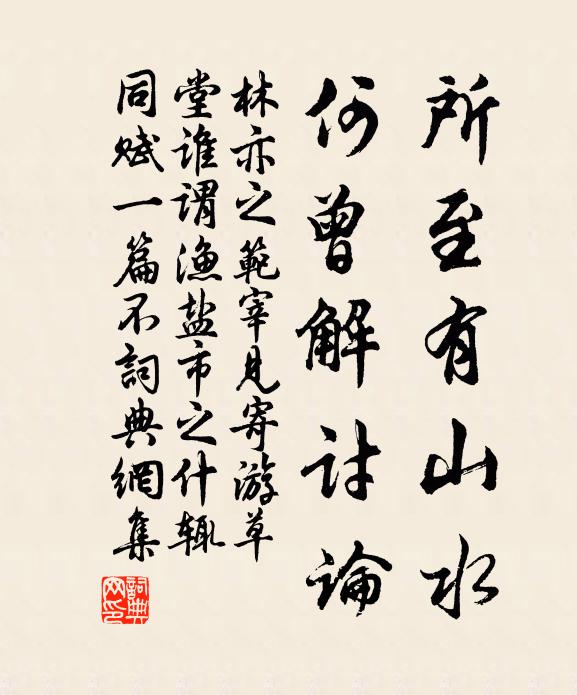 所至有山水
何曾解討論
林亦之範宰見寄游草
堂谁謂渔盐市之什辄
同赋一篇不詞典網集
詞典
网印